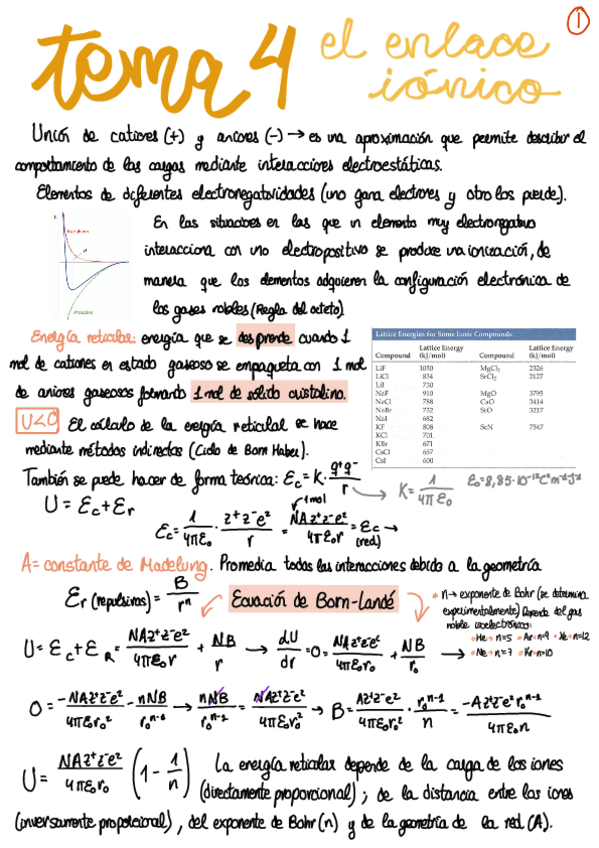 1
tema 4 el enlace
iónico
Unión de cationes (+) y aniones (-) → es una aproximación que permite describir el
comportamiento de las cargas mediante interacciones electroestáticas.
Elementos de diferentes electronegatividades (uno gana electrones y otro los pierde).
En las situaciones en las que un elemento muy electronegativo
interacciona con uno electropositivo se produce una ionización, de
manera que los elementos adquieren la configuración electrónica de
los gases nobles (Regla del octeto).
Energía reticular: energía que se desprende cuando 1
mol de cationes en estado gaseoso se empaqueta con 1 mol
de aniones gaseosos formando 1 mol de sólido cristalino.
U<0 El cálculo de la energía reticular se hace
mediante métodos indirectos (Ciclo de Born Haber).
Lattice Energies for Some Ionic Compounds
Compound Lattice Energy (kJ/mol) Compound Lattice Energy (kJ/mol)
LiF 1030 MgCl₂ 2326
LiCl 834 SrCl₂ 2127
LiI 730
NaF 910 MgO 3795
NaCl 788 CaO 3414
NaBr 732 SrO 3217
NaI 682
KF 808 ScN 7547
KCl 701
KBr 671
CsCl 657
CsI 600
También se puede hacer de forma teórica: Ec = K · q⁺q⁻/r → K = 1/4πε₀ ε₀=8,85·10⁻¹²C²m⁻¹J⁻¹
U = Ec + Er
1mol
Ec = 1/4πε₀ · z⁺z⁻e²/r = NAz⁺z⁻e²/4πε₀r = Ec (red) →
A = constante de Madelung. Promedia todas las interacciones debido a la geometría
Er (repulsivas) = B/rⁿ Ecuación de Born-Landé
n → exponente de Bohr (se determina
experimentalmente) Depende del gas
noble isoelectrónico:
He → n=5 Ar → n=9 Xe → n=12
Ne → n=7 Kr → n=10
U = Ec + ER = NAz⁺z⁻e²/4πε₀r + NB/r → dU/dr = 0 = NAz⁺z⁻e²/4πε₀r₀ + NB/r₀ →
0 = -NAz⁺z⁻e²/4πε₀r₀² - nNB/r₀ⁿ⁻¹ → nNB/r₀ⁿ⁻¹ = NAz⁺z⁻e²/4πε₀r₀² → B = Az⁺z⁻e²/4πε₀r₀² · r₀ⁿ⁻¹/n = -Az⁺z⁻e²r₀ⁿ⁻¹/4πε₀n
U = NAz⁺z⁻e²/4πε₀r₀ (1 - 1/n) La energía reticular depende de la carga de los iones
(directamente proporcional); de la distancia entre los iones
(inversamente proporcional), del exponente de Bohr (n) y de la geometría de la red (A).